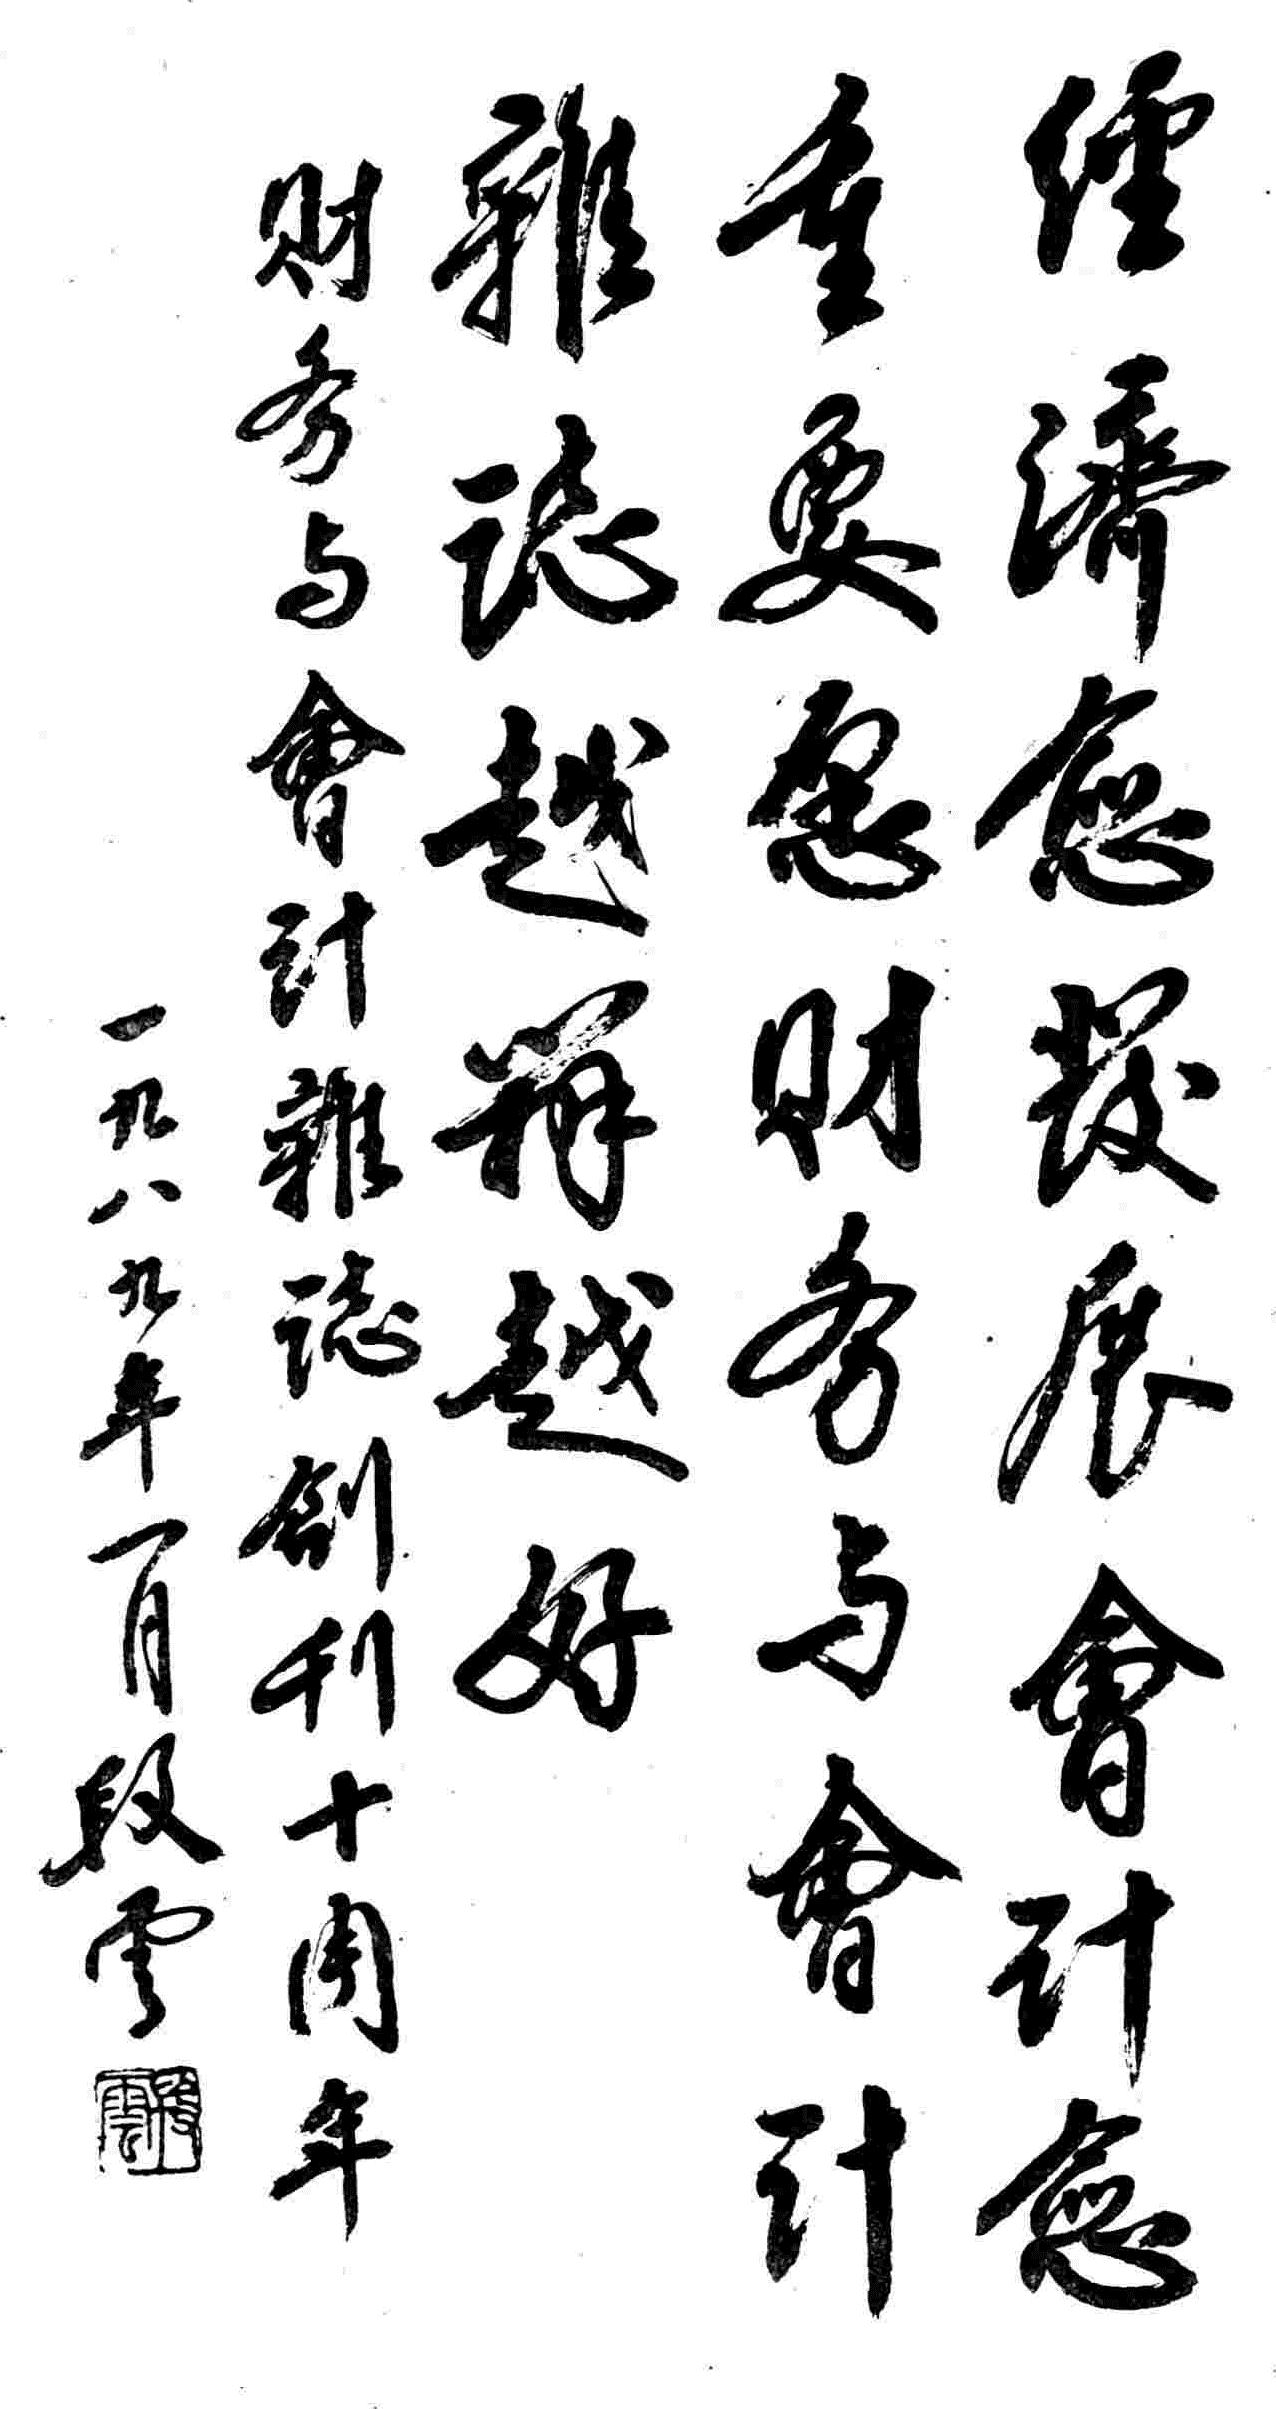 經濟愈發展會計愈
重要愿财务与會計
雜誌越辦越好
财务与會計雜誌創刊十周年
一九八九年一月段雲
段雲